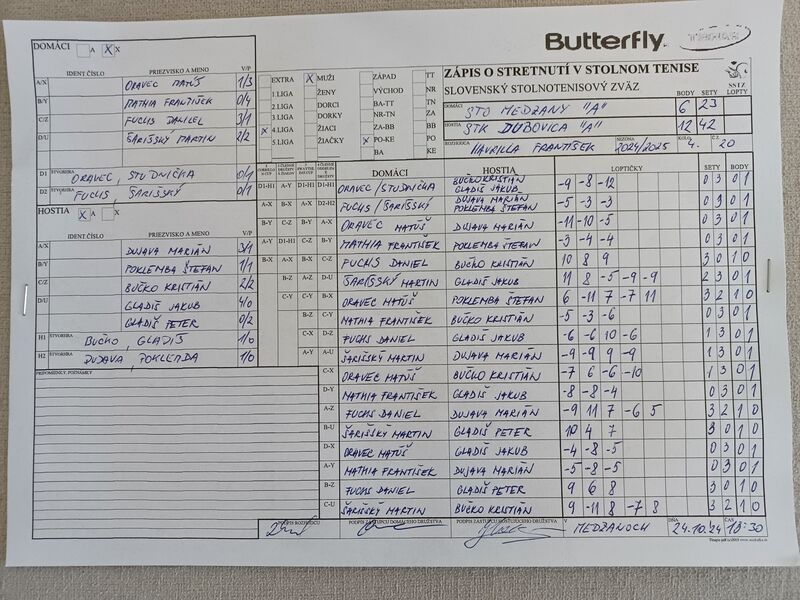 DOMÁCI A X X
Butterfly
IDENT.ČÍSLO PRIEZVISKO A MENO V/P
A/X ORAVEC MATÚŠ 1/3
B/Y MATHIA FRANTIŠEK 0/4
C/Z FUCHS DANIEL 3/1
D/U ŠARIŠSKÝ MARTIN 2/2
D1 ŠTVORHRA ORAVEC, STUDNIČKA 0/1
D2 FUCHS, ŠARIŠSKÝ 0/1
HOSTIA X A X
IDENT.ČÍSLO PRIEZVISKO A MENO V/P
A/X DUJAVA MARIÁN 3/1
B/Y POKLEMBA ŠTEFAN 1/1
C/Z BUČKO KRISTIÁN 2/2
D/U GLADIŠ JAKUB 4/0
GLADIŠ PETER 0/2
H1 ŠTVORHRA BUČKO, GLADIŠ 1/0
H2 ŠTVORHRA DUJAVA, POKLEMBA 1/0
PRIPOMIENKY, POZNÁMKY
EXTRA X MUŽI ZÁPAD TT
1.LIGA ŽENY VÝCHOD NR
2.LIGA DORCI BA-TT TN
3.LIGA DORKY NR-TN ZA
X 4.LIGA ŽIACI ZA-BB BB
5.LIGA ŽIAČKY X PO-KE PO
BA KE
ZÁPIS O STRETNUTÍ V STOLNOM TENISE
SLOVENSKÝ STOLNOTENISOVÝ ZVÄZ
BODY SETY LOPTY
DOMÁCI STO MEDZANY "A" 6 23
HOSTIA STK DUBOVICA "A" 12 42
ROZHODCA HAVRILLA FRANTIŠEK SEZÓNA 2024/2025 KOLO 4. Č. 20
DOMÁCI HOSTIA LOPTIČKY SETY BODY
D1-H1 A-Y D1-H1 D1-H1 ORAVEC/STUDNIČKA BUČKO KRISTIÁN GLADIŠ JAKUB -9 -8 -12 0 3 0 1
A-X B-X A-X D2-H2 FUCHS/ŠARIŠSKÝ DUJAVA MARIÁN POKLEMBA ŠTEFAN -5 -3 -3 0 3 0 1
B-Y C-Z B-Y A-X ORAVEC MATÚŠ DUJAVA MARIÁN -11 -10 -5 0 3 0 1
A-Y D1-H1 C-Z B-Y MATHIA FRANTIŠEK POKLEMBA ŠTEFAN -3 -4 -4 0 3 0 1
B-X A-X B-X C-Z FUCHS DANIEL BUČKO KRISTIÁN 10 8 9 3 0 1 0
B-Z A-Z D-U ŠARIŠSKÝ MARTIN GLADIŠ JAKUB 11 8 -5 -9 -9 2 3 0 1
C-Y C-Y B-X ORAVEC MATÚŠ POKLEMBA ŠTEFAN 6 -11 7 -7 11 3 2 1 0
B-Z C-Y MATHIA FRANTIŠEK BUČKO KRISTIÁN -5 -3 -6 0 3 0 1
C-X D-Z FUCHS DANIEL GLADIŠ JAKUB -6 -6 10 -6 1 3 0 1
A-Y A-U ŠARIŠSKÝ MARTIN DUJAVA MARIÁN -9 -9 9 -9 1 3 0 1
C-X ORAVEC MATÚŠ BUČKO KRISTIÁN -7 6 -6 -10 1 3 0 1
D-Y MATHIA FRANTIŠEK GLADIŠ JAKUB -8 -8 -4 0 3 0 1
A-Z FUCHS DANIEL DUJAVA MARIÁN -9 11 7 -6 5 3 2 1 0
B-U ŠARIŠSKÝ MARTIN GLADIŠ PETER 10 4 7 3 0 1 0
D-X ORAVEC MATÚŠ GLADIŠ JAKUB -4 -8 -5 0 3 0 1
A-Y MATHIA FRANTIŠEK DUJAVA MARIÁN -5 -8 -5 0 3 0 1
B-Z FUCHS DANIEL GLADIŠ PETER 9 6 8 3 0 1 0
C-U ŠARIŠSKÝ MARTIN BUČKO KRISTIÁN 9 -11 8 -7 8 3 2 1 0
PODPIS ROZHODCU PODPIS ZÁSTUPCU DOMÁCEHO DRUŽSTVA PODPIS ZÁSTUPCU HOSŤUJÚCEHO DRUŽSTVA V MEDZANOCH DŇA 24.10.24 ČAS 19:30